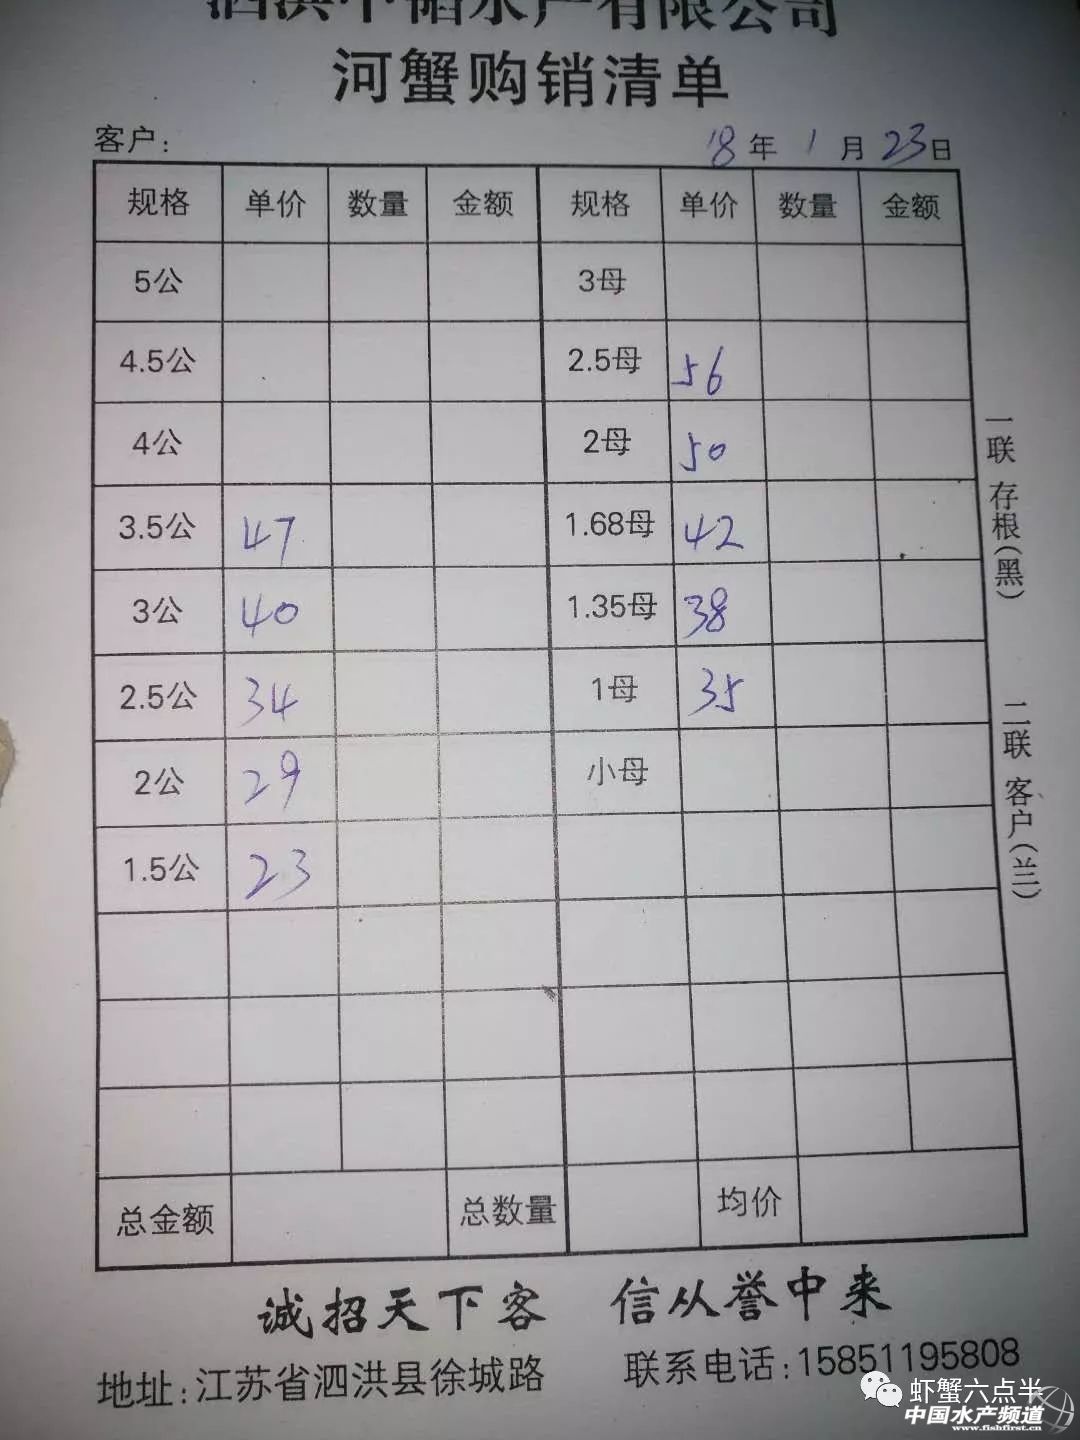 泗洪中韬水产有限公司
河蟹购销清单
客户: 18年 1月 23日
规格 单价 数量 金额 规格 单价 数量 金额
5公 3母
4.5公 2.5母 56
4公 2母 50
3.5公 47 1.68母 42
3公 40 1.35母 38
2.5公 34 1母 35
2公 29 小母
1.5公 23
总金额 总数量 均价
一联 存根(黑)
二联 客户(兰)
诚招天下客 信从誉中来
地址:江苏省泗洪县徐城路 联系电话:15851195808
虾蟹六点半
中国水产频道
www.fishfirst.cn